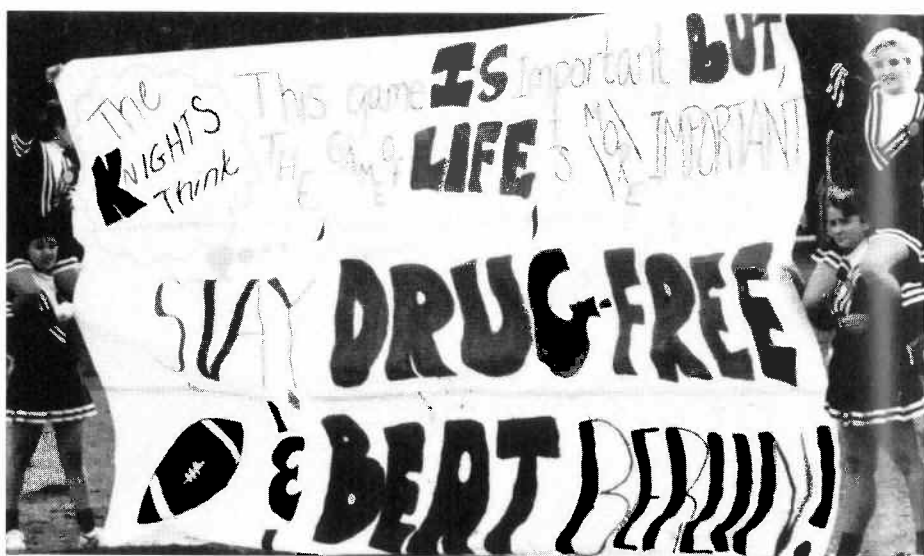 The KNIGHTS Think
This game IS Important BUT,
THE GAME OF LIFE is MORE IMPORTANT
STAY DRUG-FREE
& BEAT BERLIN!